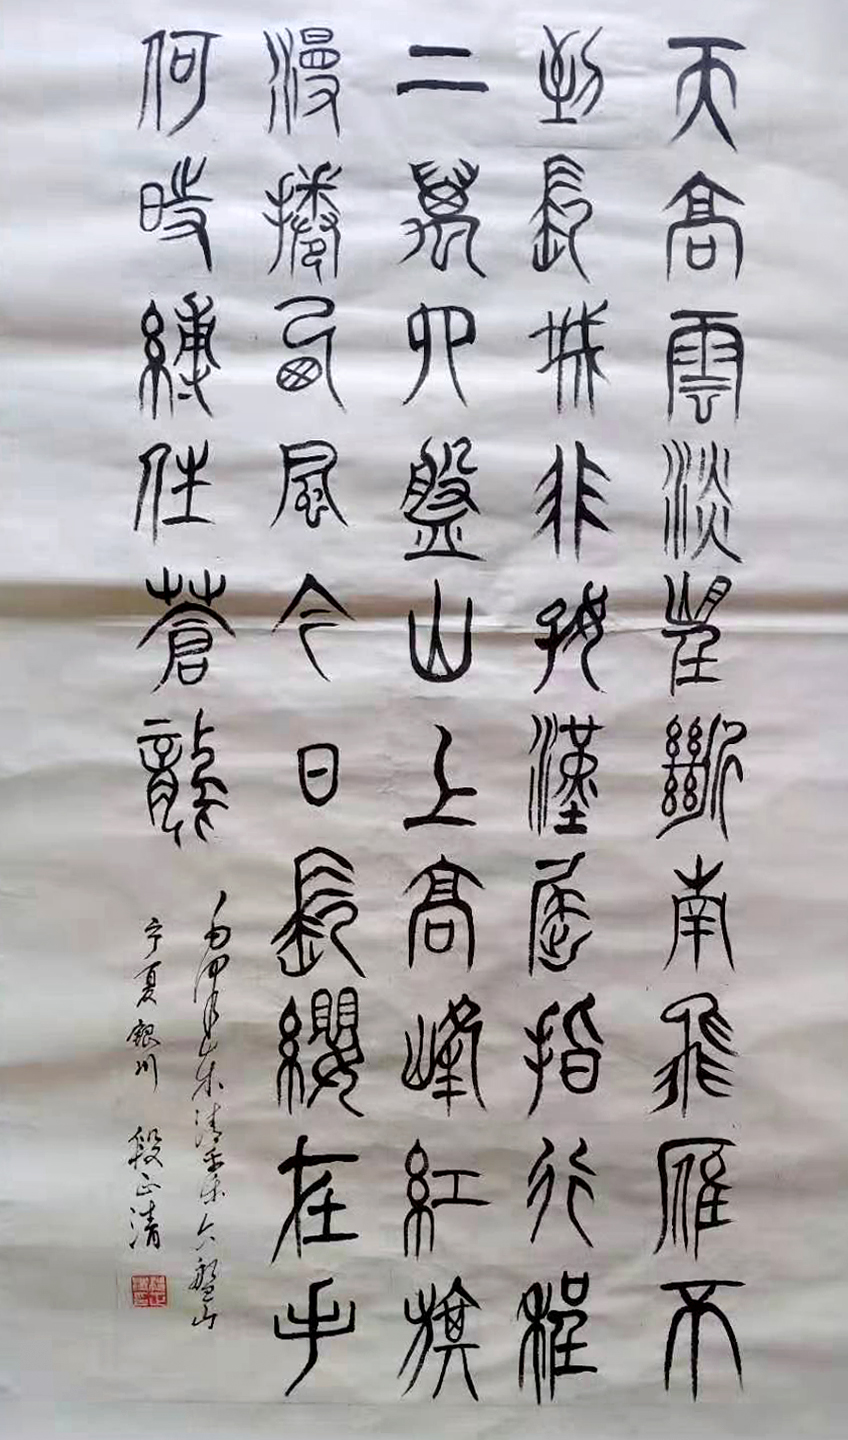 天高雲淡望斷南飛雁不
到長城非好漢屈指行程
二萬六盤山上高峰紅旗
漫捲西風今日長纓在手
何時縛住蒼龍
清平乐六盘山
宁夏银川 段正清